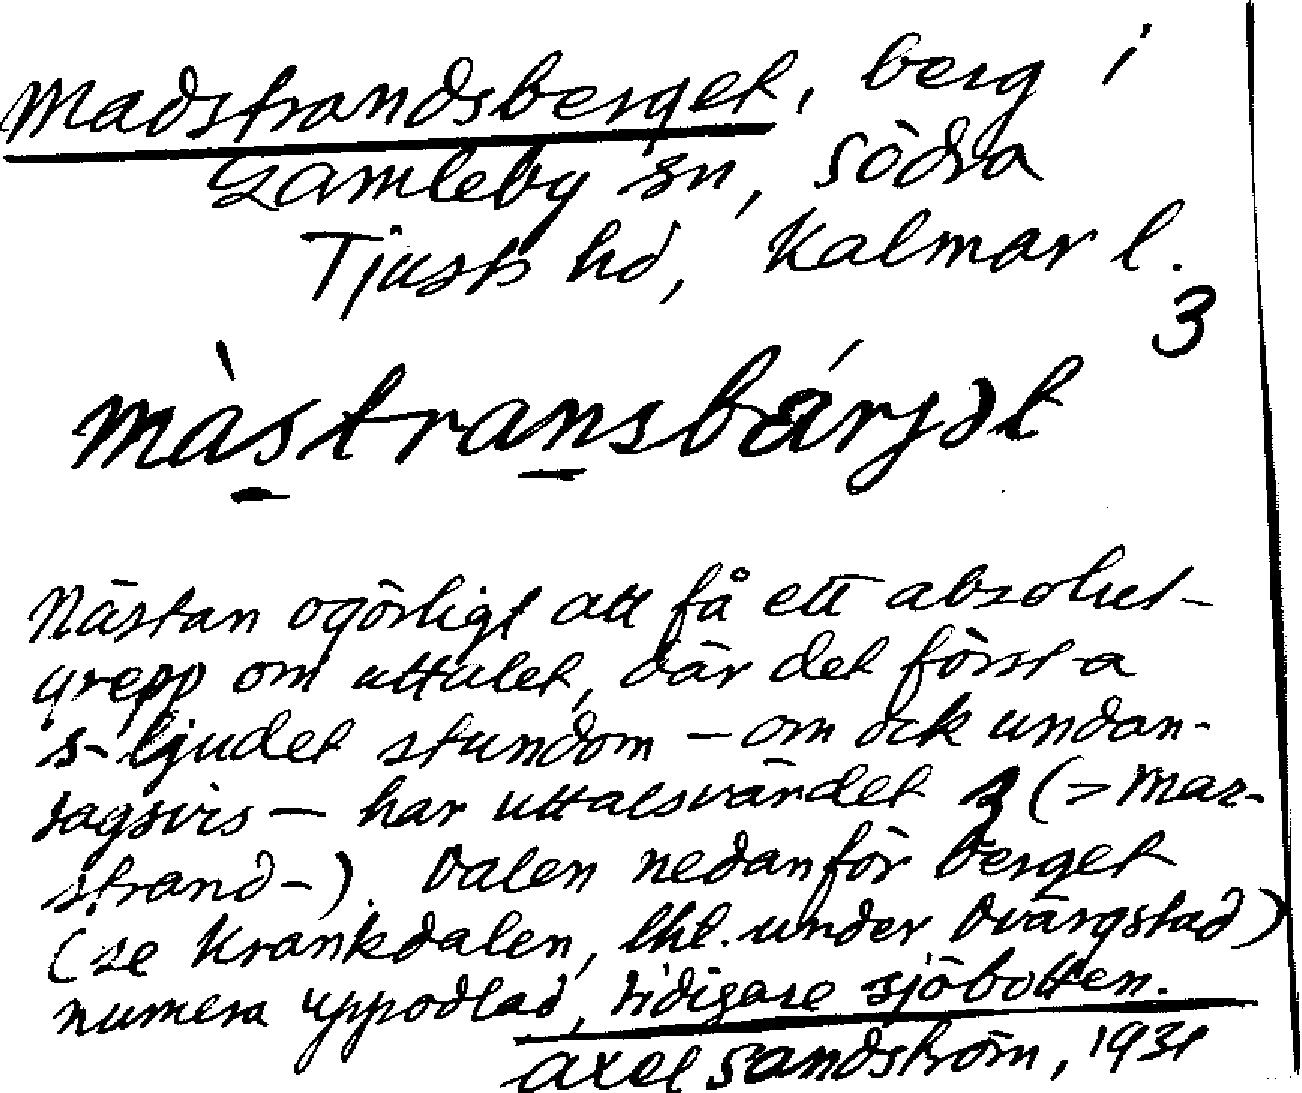 Madstrandsberget, berg i
Gamleby sn, Södra
Tjusts hd, Kalmar l.
3
màstransbärjət
Nästan ogörligt att få ett absolut
grepp om uttalet, där det första
s-ljudet stundom – om ock undan-
tagsvis – har uttalsvärdet (> Maz-
strand-). Dalen nedanför berget
(se Krankdalen, lht. under Dvärgstad)
numera uppodlad, tidigare sjöbotten.
Axel Sandström, 1931